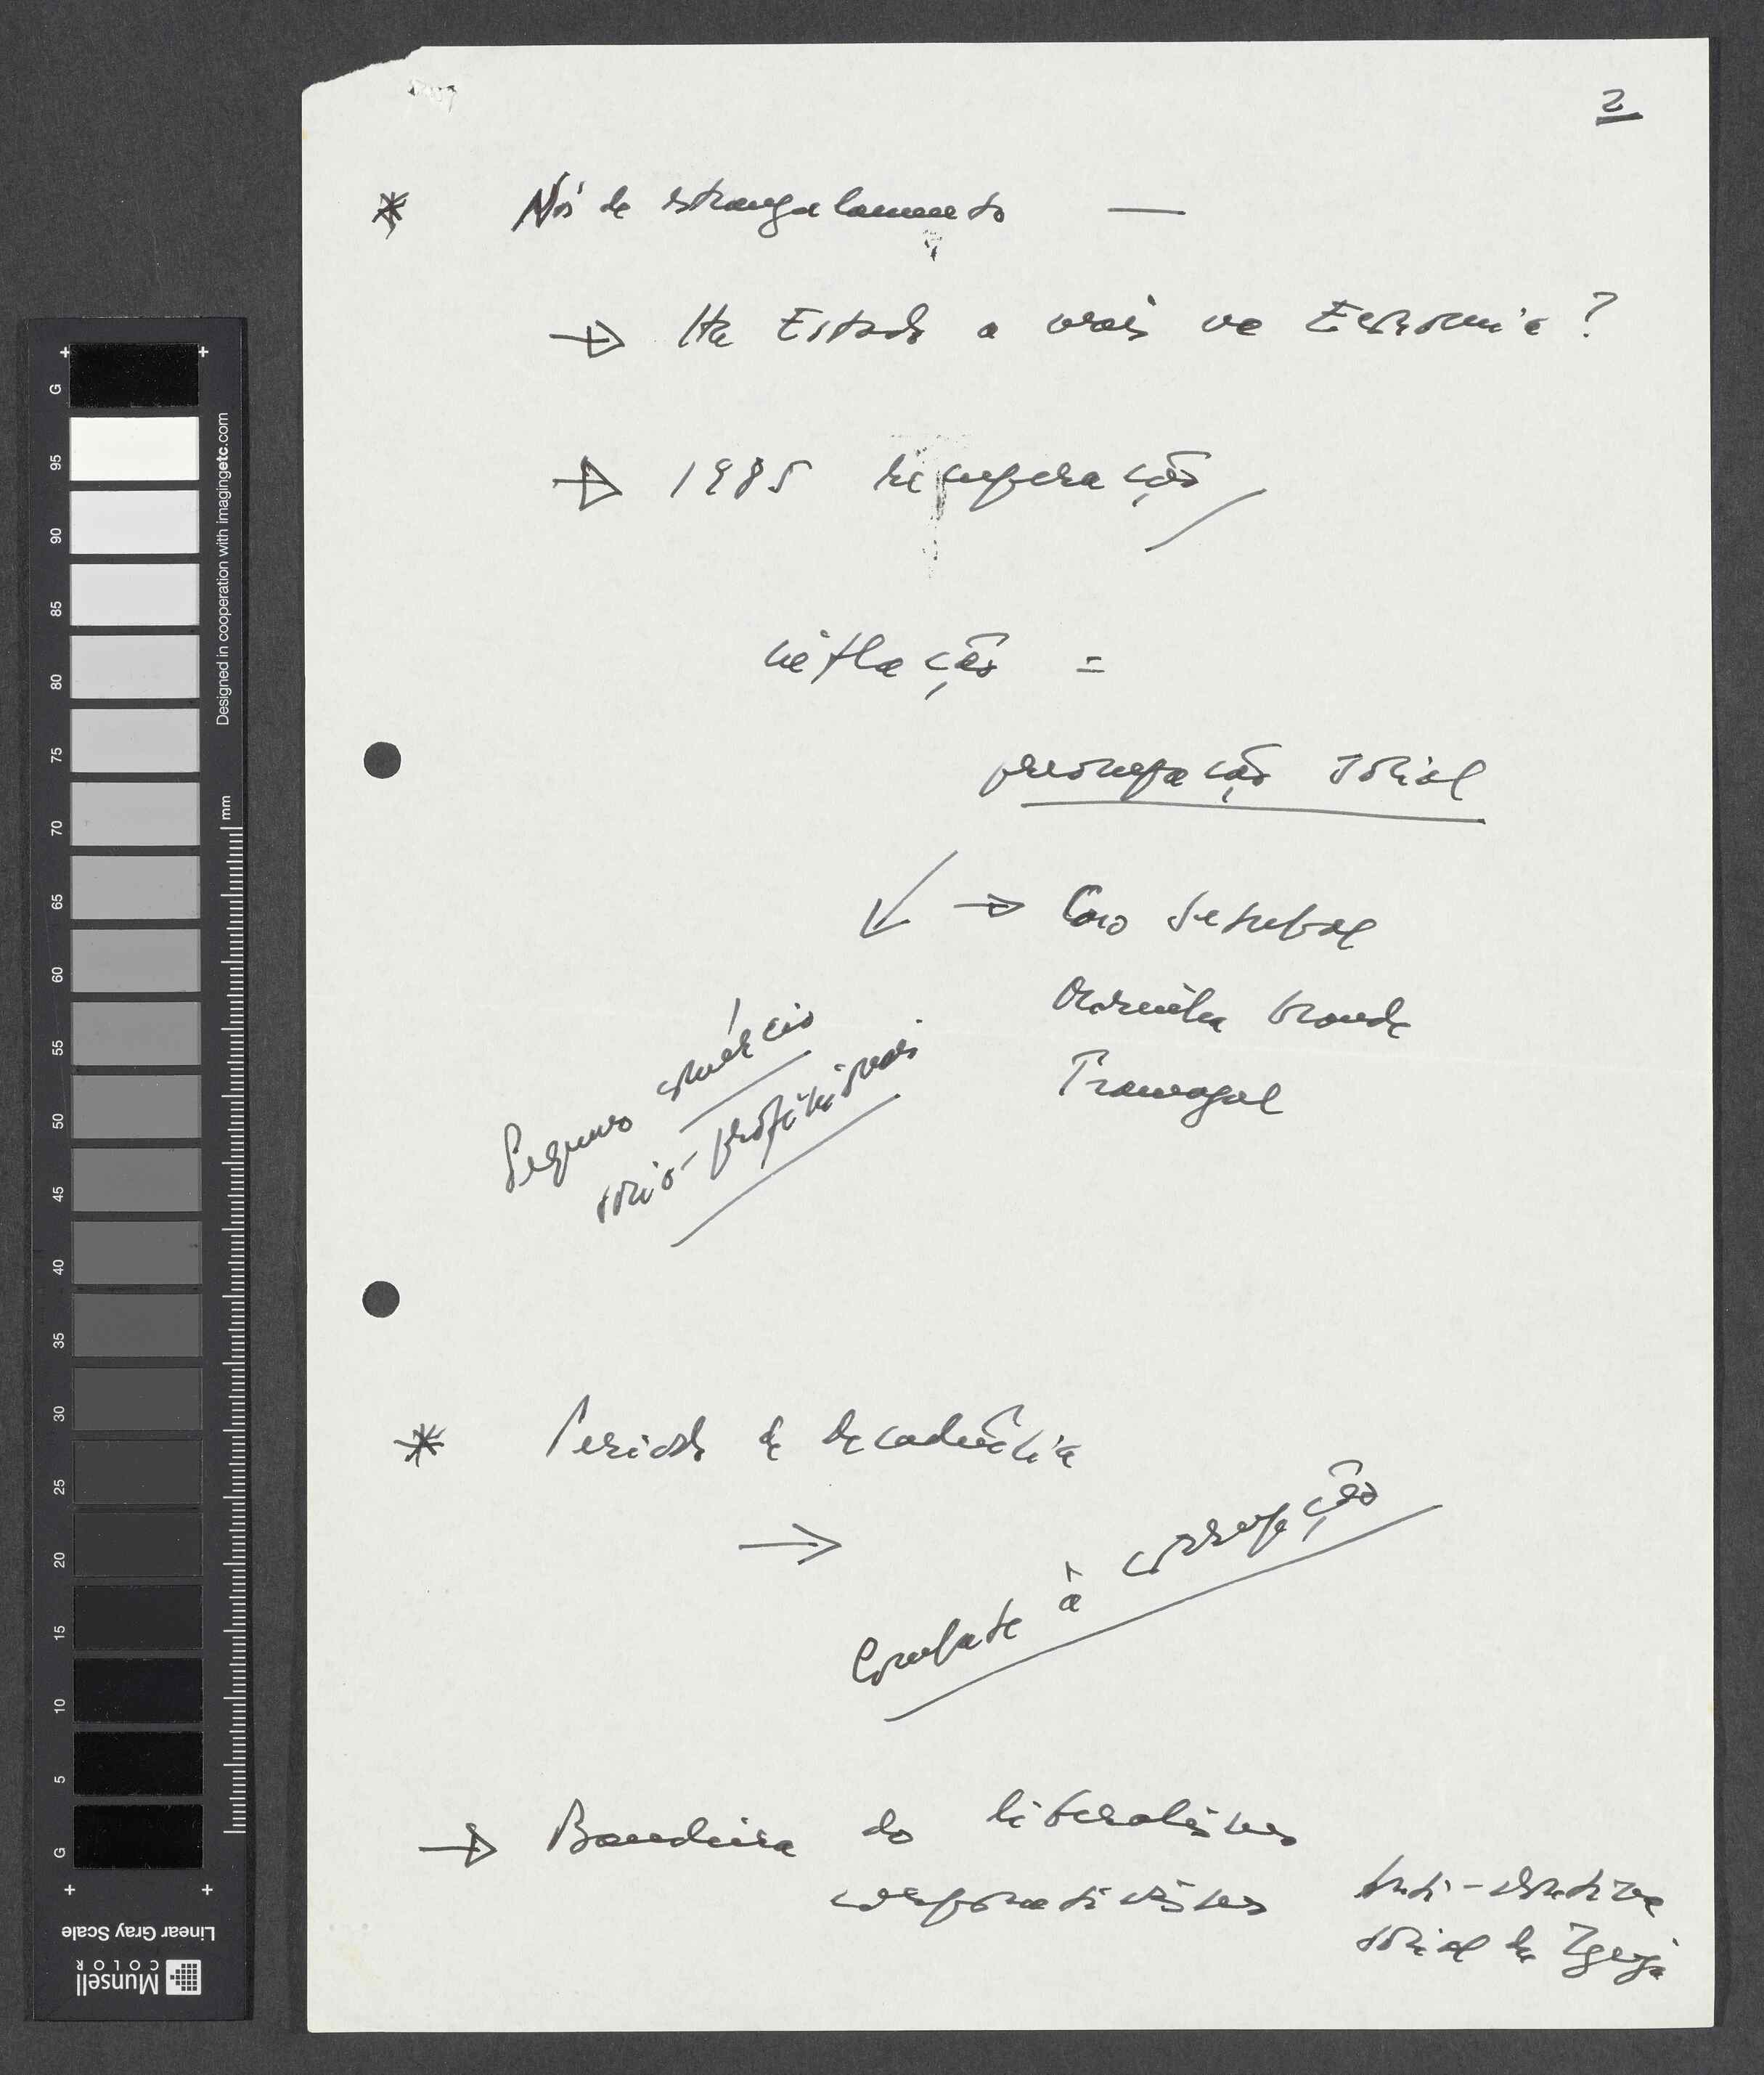 2
* Nós de estrangulamento —
→ Há Estado a mais na Economia ?
→ 1985 recuperação
inflação =
preocupação social
→ Caso Setubal
Marinha Grande
Tramagal
Pequeno comércio
sócio-profissionais
* Periodo de decadência
→
Combate à corrupção
→ Bandeira do liberalismo
corporativismo
Anti-doutrina
social da Igreja
G
95
90
85
80
75
70
65
60
55
50
45
40
35
30
25
20
15
10
5
G
mm
Designed in cooperation with imagingetc.com
Linear Gray Scale
Munsell
COLOR